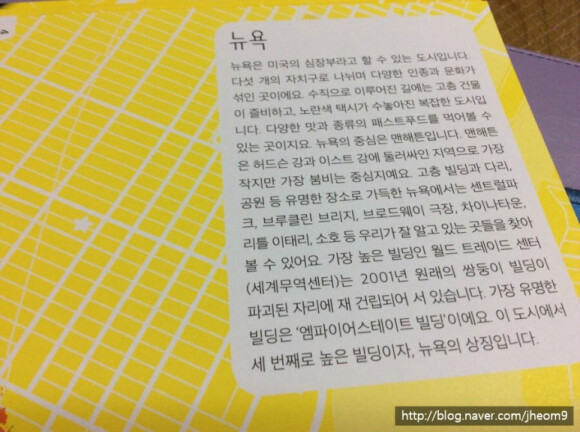 뉴욕
뉴욕은 미국의 심장부라고 할 수 있는 도시입니다.
다섯 개의 자치구로 나뉘며 다양한 인종과 문화가
섞인 곳이에요. 수직으로 이루어진 길에는 고층 건물
이 즐비하고, 노란색 택시가 수놓아진 복잡한 도시입
니다. 다양한 맛과 종류의 패스트푸드를 먹어볼 수
있는 곳이지요. 뉴욕의 중심은 맨해튼입니다. 맨해튼
은 허드슨 강과 이스트 강에 둘러싸인 지역으로 가장
작지만 가장 붐비는 중심지예요. 고층 빌딩과 다리,
공원 등 유명한 장소로 가득한 뉴욕에서는 센트럴파
크, 브루클린 브리지, 브로드웨이 극장, 차이나타운,
리틀 이태리, 소호 등 우리가 잘 알고 있는 곳들을 찾아
볼 수 있어요. 가장 높은 빌딩인 월드 트레이드 센터
(세계무역센터)는 2001년 원래의 쌍둥이 빌딩이
파괴된 자리에 재 건립되어 서 있습니다. 가장 유명한
빌딩은 '엠파이어스테이트 빌딩'이에요. 이 도시에서
세 번째로 높은 빌딩이자, 뉴욕의 상징입니다.
http://blog.naver.com/jheom9